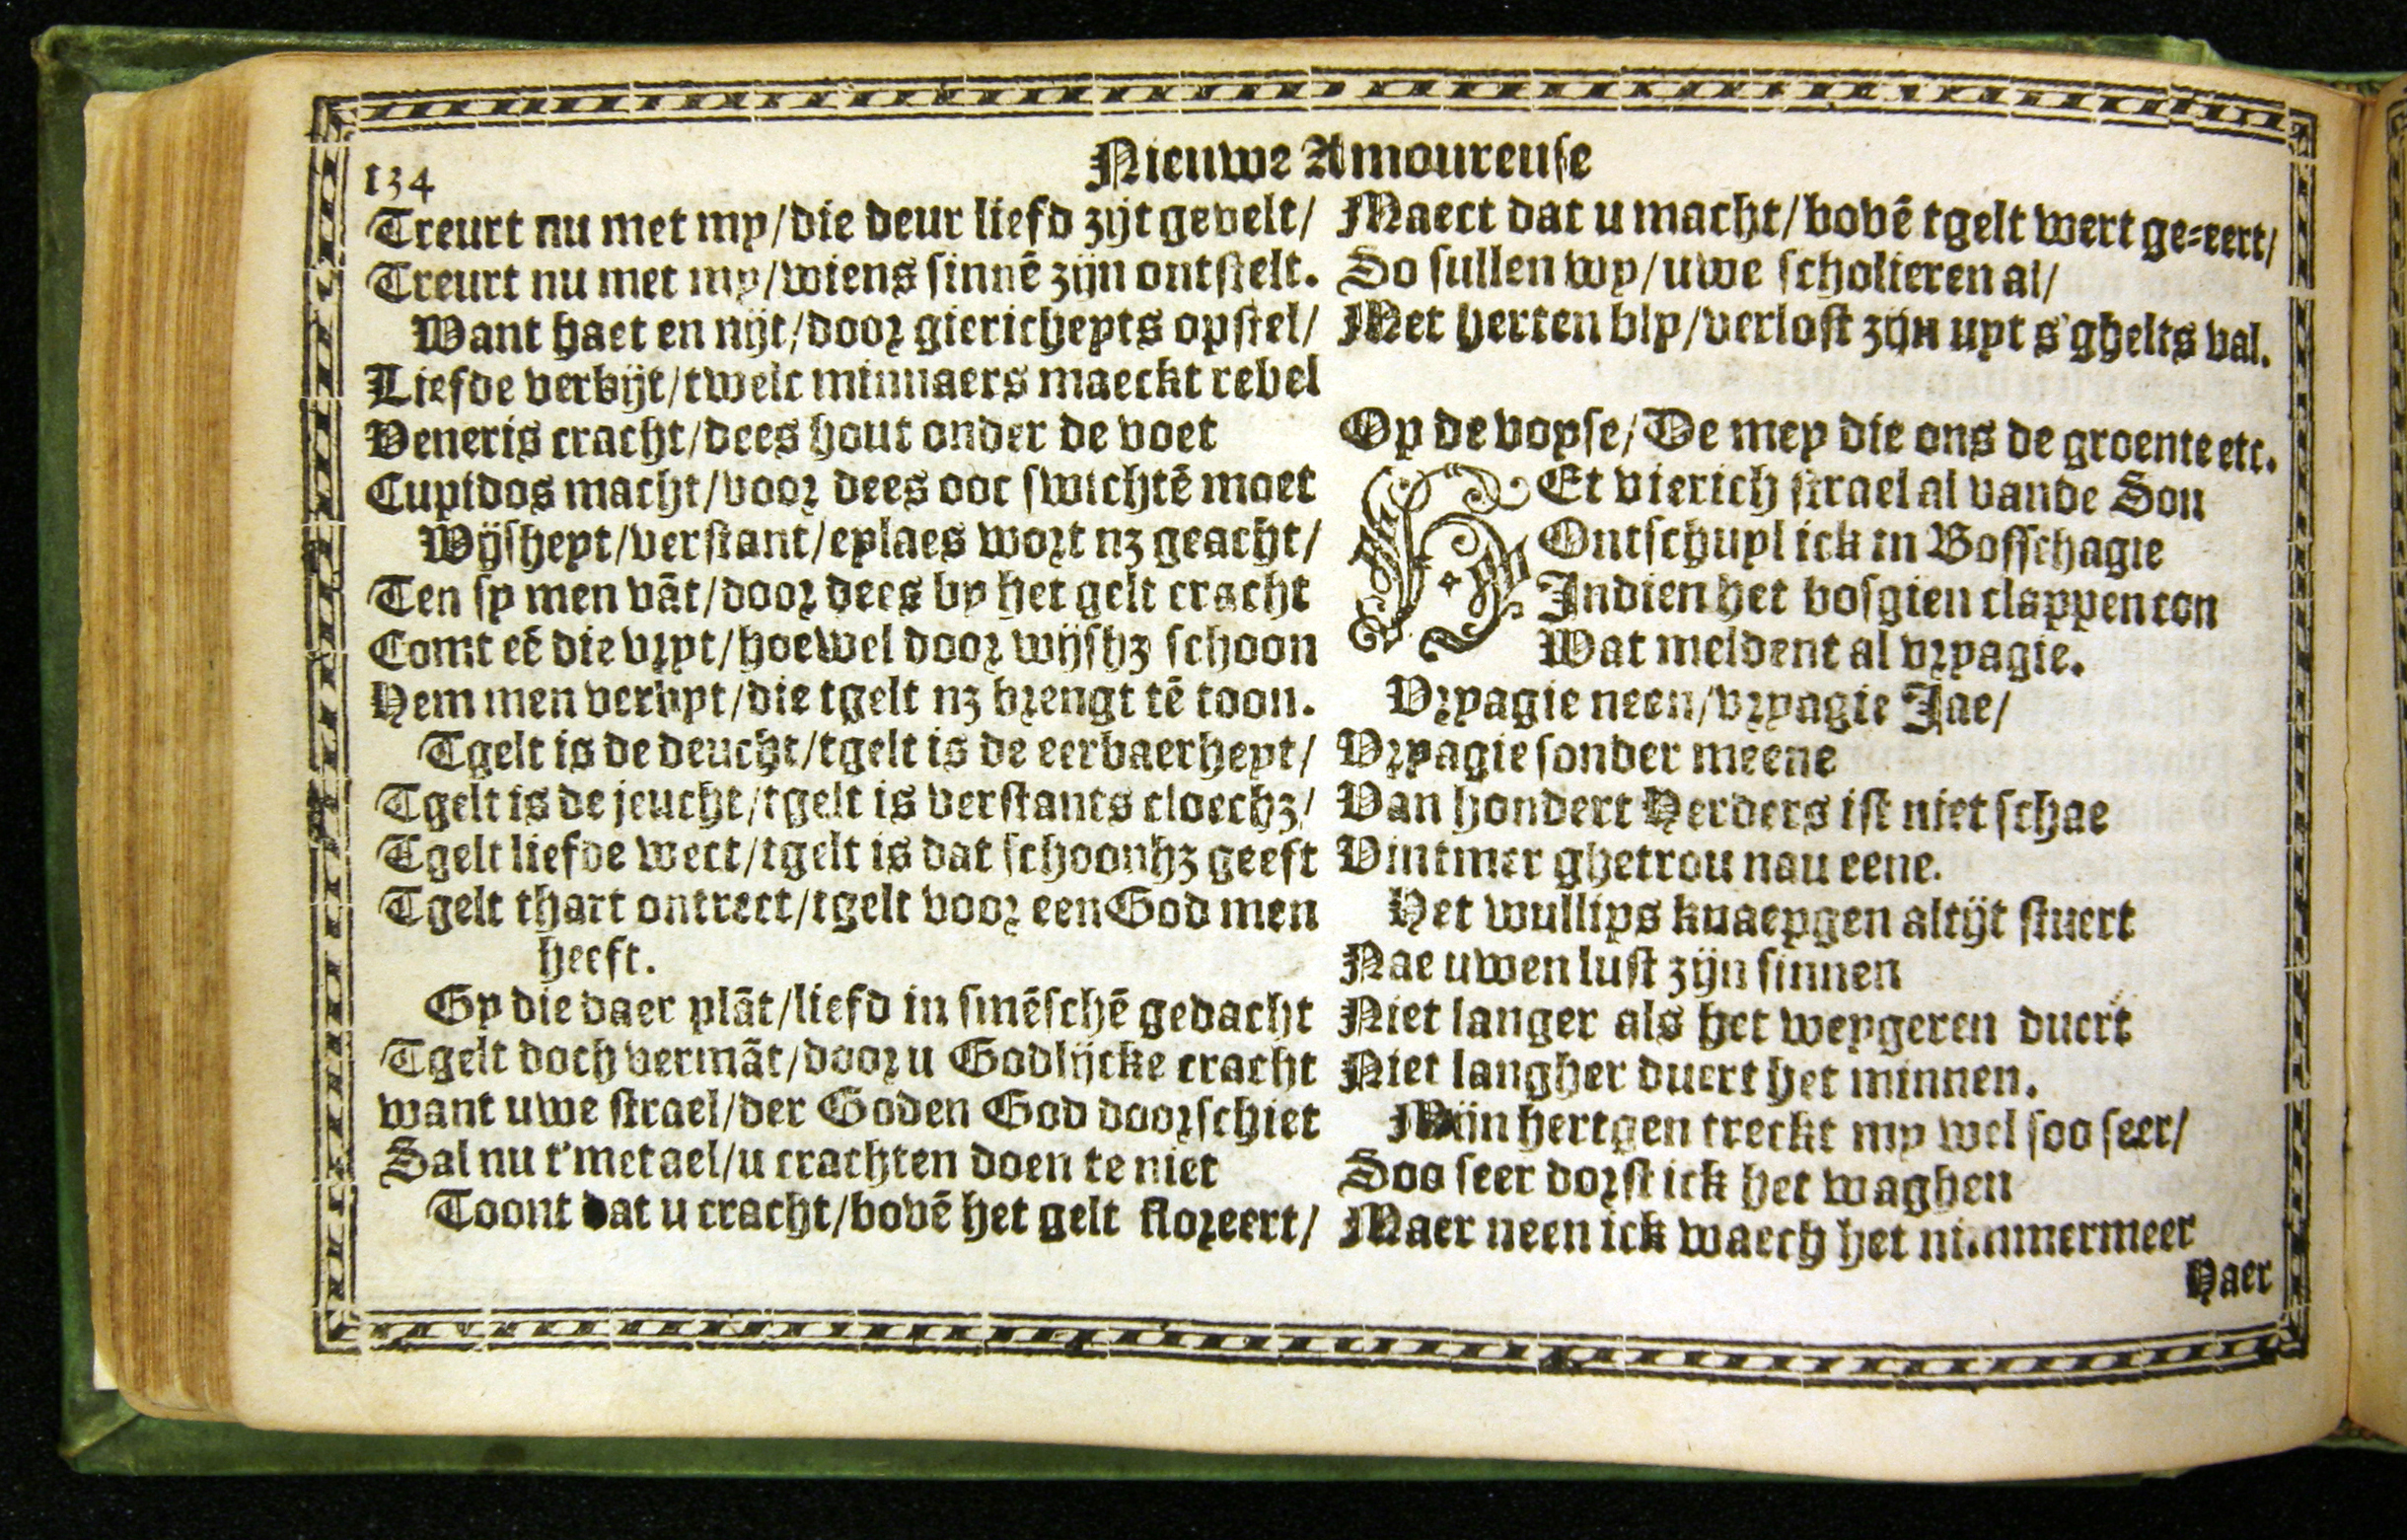 134
Nieuwe Amoureuse
Treurt nu met my/die deur liefd zijt gevelt/
Treurt nu met my/wiens sinnē zijn ontstelt.
Want haet en nijt/door giericheyts opstel/
Liefde verbijt/twelc minnaers maeckt rebel
Veneris cracht/dees hout onder de voet
Cupidos macht/voor dees ooc swichtē moet
Wijsheyt/verstant/eylaes wort nz geacht/
Ten sy men vāt/door dees by het gelt cracht
Comt eē die vryt/hoewel door wijshz schoon
Hem men verbyt/die tgelt nz brengt tē toon.
Tgelt is de deucht/tgelt is de eerbaerheyt/
Tgelt is de jeucht/tgelt is verstants cloechz/
Tgelt liefde wect/tgelt is dat schoonhz geeft
Tgelt thart ontrect/tgelt voor een God men
heeft.
Gy die daer plāt/liefd in smēschē gedacht
Tgelt doch vermāt/door u Godlijcke cracht
want uwe strael/der Goden God doorschiet
Sal nu t'metael/u crachten doen te niet
Toont dat u cracht/bovē het gelt floreert/
Maect dat u macht/bovē tgelt wert ge-eert/
So sullen wy/uwe scholieren al/
Met herten bly/verlost zijn uyt s'ghelts val.
Op de voyse/De mey die ons de groente etc.
HEt vierich strael al vande Son
Ontschuyl ick in Bosschagie
Indien het bosgien clappen con
Wat meldent al vryagie.
Vryagie neen/vryagie Jae/
Vryagie sonder meene
Van hondert Herders ist niet schae
Vintmer ghetrou nau eene.
Het wullips knaepgen altijt stuert
Nae uwen lust zijn sinnen
Niet langer als het weygeren duert
Niet langher duert het minnen.
Mijn hertgen treckt my wel soo seer/
Soo seer dorst ick het waghen
Maer neen ick waech het nimmermeer
Haer